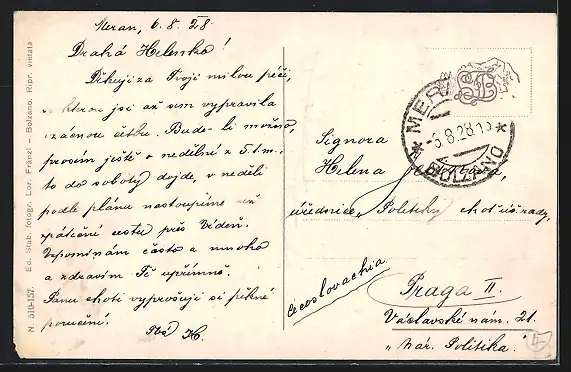 Meran, 6. 8. 28
Drahá Helenko!
Děkuji za Tvoji milou péči,
s kterou jsi až sem vypravila
vzácnou četbu. Bude-li možno,
prosím ještě o nedělní z 5. t. m.,
to do soboty dojde, v neděli
podle plánu nastoupíme už
zpáteční cestu přes Vídeň.
Vzpomínám často a mnoho
a zdravím Tě upřímně.
Panu choti vyprošuji si pěkné
poručení.
N. 510-157. Ed. Stab. fotogr. Lor. Fränzl — Bolzano. Ripr. vietata
MERANO
-6.8.28.15
BOLZANO
Signora
Helena
úřednice „Politiky" choť úř. rady,
Cecoslovachia
Praga II.
Václavské nám. 21.
„Nár. Politika"